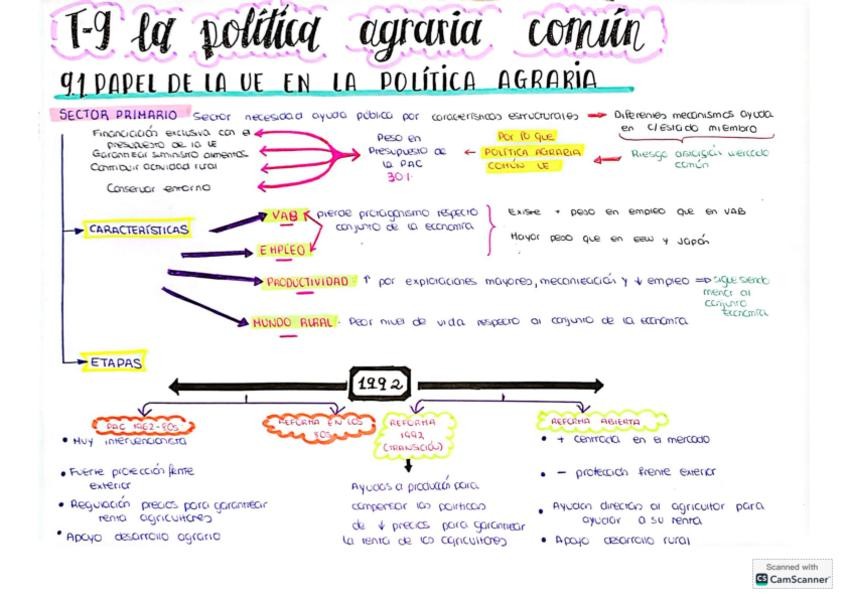 T-9 la política agraria común
9.1 PAPEL DE LA UE EN LA POLÍTICA AGRARIA
SECTOR PRIMARIO Sector necesidad ayuda pública por características estructurales → Diferentes mecanismos ayuda
en c/estado miembro
Financiación exclusiva con el
presupuesto de la UE
Garantizar suministro alimentos
Contribuir actividad rural
Conservar entorno
Peso en
Presupuesto de
la PAC
30%
Por lo que
POLÍTICA AGRARIA
COMÚN UE
Riesgo mercado
común
CARACTERÍSTICAS
VAB
pierde protagonismo respecto
conjunto de la economía
EMPLEO
Existe + peso en empleo que en VAB
Mayor peso que en EEUU y Japón
PRODUCTIVIDAD: ↑ por explotaciones mayores, mecanización y ↓ empleo ⇒ sigue siendo
menor al
conjunto
economía
MUNDO RURAL · Peor nivel de vida respecto al conjunto de la economía
ETAPAS
1992
PAC 1962-80s
• Muy intervencionista
• Fuerte protección frente
exterior
• Regulación precios para garantizar
renta agricultores
• Apoyo desarrollo agrario
REFORMA EN LOS
80s
REFORMA
1992
(TRANSICIÓN)
Ayudas a producción para
compensar las políticas
de ↓ precios para garantizar
la renta de los agricultores
REFORMA ABIERTA
• + centrada en el mercado
• - protección frente exterior
• Ayudas directas al agricultor para
ayudar a su renta
• Apoyo desarrollo rural
Scanned with
CS CamScanner